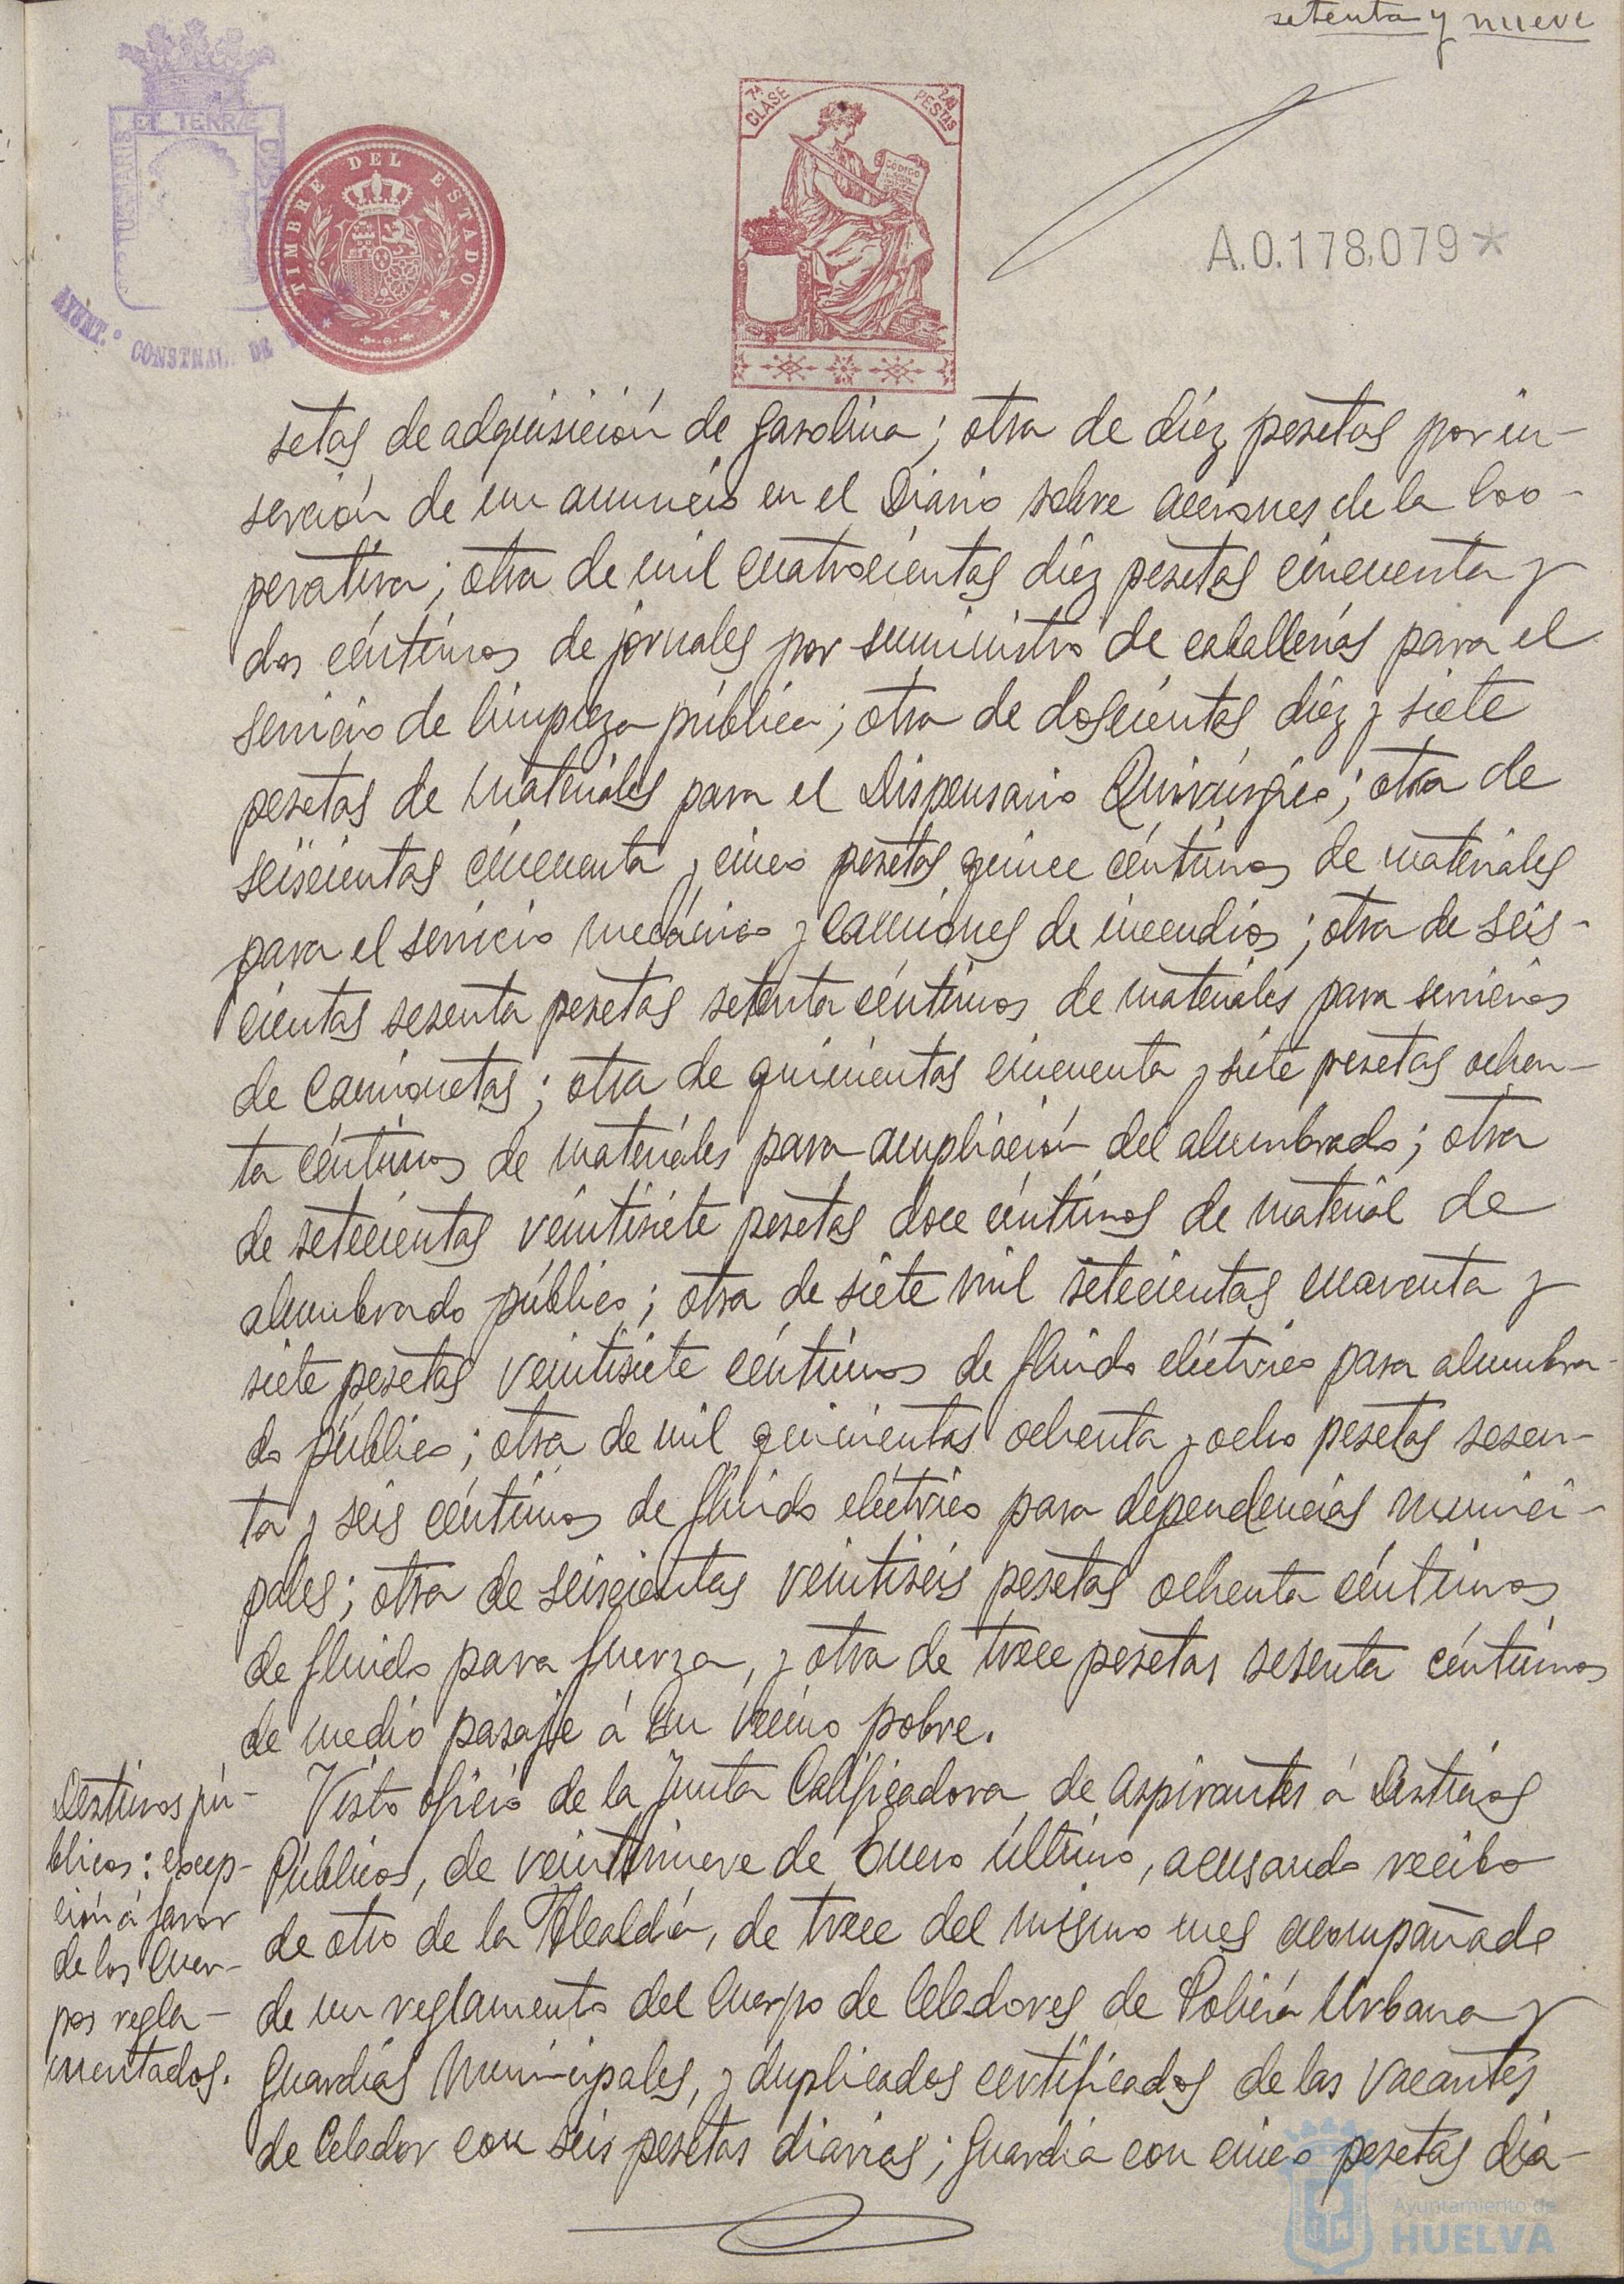 setenta y nueve
PORTUS MARIS ET TERRÆ CUSTODIA
AYUNT.º CONSTNAL. DE
TIMBRE DEL ESTADO
7ª CLASE
PESTAS
CODIGO
A.0.178,079*
setas de adquisición de gasolina; otra de diez pesetas por in-
serción de un anuncio en el Diario sobre acciones de la Coo-
perativa; otra de mil cuatrocientas diez pesetas cincuenta y
dos céntimos de jornales por suministro de caballerías para el
servicio de limpieza pública; otra de doscientas diez y siete
pesetas de materiales para el Dispensario Quirúrgico; otra de
seiscientas cincuenta y cinco pesetas quince céntimos de materiales
para el servicio mecánico y camiones de incendios; otra de seis-
cientas sesenta pesetas setenta céntimos de materiales para servicios
de camionetas; otra de quinientas cincuenta y siete pesetas ochen-
ta céntimos de materiales para ampliación del alumbrado; otra
de setecientas veintisiete pesetas doce céntimos de material de
alumbrado público; otra de siete mil setecientas cuarenta y
siete pesetas veintisiete céntimos de fluido eléctrico para alumbra-
do público; otra de mil quinientas ochenta y ocho pesetas sesen-
ta y seis céntimos de fluido eléctrico para dependencias munici-
pales; otra de seiscientas veintiseis pesetas ochenta céntimos
de fluido para fuerza, y otra de trece pesetas sesenta céntimos
de medio pasaje á un vecino pobre.
Destinos pú-
blicos: excep-
ción á favor
de los Cuer-
pos regla-
mentados.
Visto oficio de la Junta Calificadora de Aspirantes á Destinos
Públicos, de veintinueve de Enero último, acusando recibo
de otro de la Alcaldía, de trece del mismo mes acompañado
de un reglamento del Cuerpo de Celadores de Policía Urbana y
Guardias Municipales, y duplicados certificados de las vacantes
de Celador con seis pesetas diarias; Guardia con cinco pesetas dia-
Ayuntamiento de
HUELVA